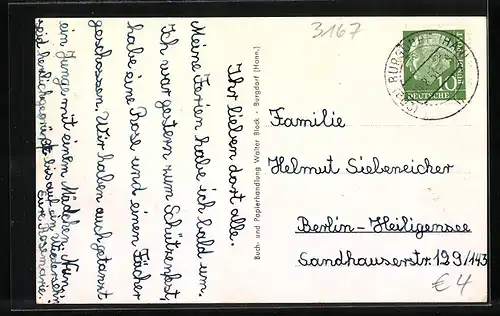 3167
Ihr lieben dort alle.
Meine Ferien habe ich bald um.
Ich war gestern zum Schützenfest,
habe eine Rose und einen Fächer
geschossen. Wir haben auch getanzt
ein Junge mit einen Mädchen. Nun
seid herzlich gegrüßt bis auf den Wiedersehn
Eure Rosemarie.
Buch- und Papierhandlung Walter Block - Burgdorf (Hann.)
BURGDORF (HAN
10
DEUTSCHE
Familie
Helmut Siebeneicher
Berlin-Heiligensee
Sandhauserstr. 129/143
€4